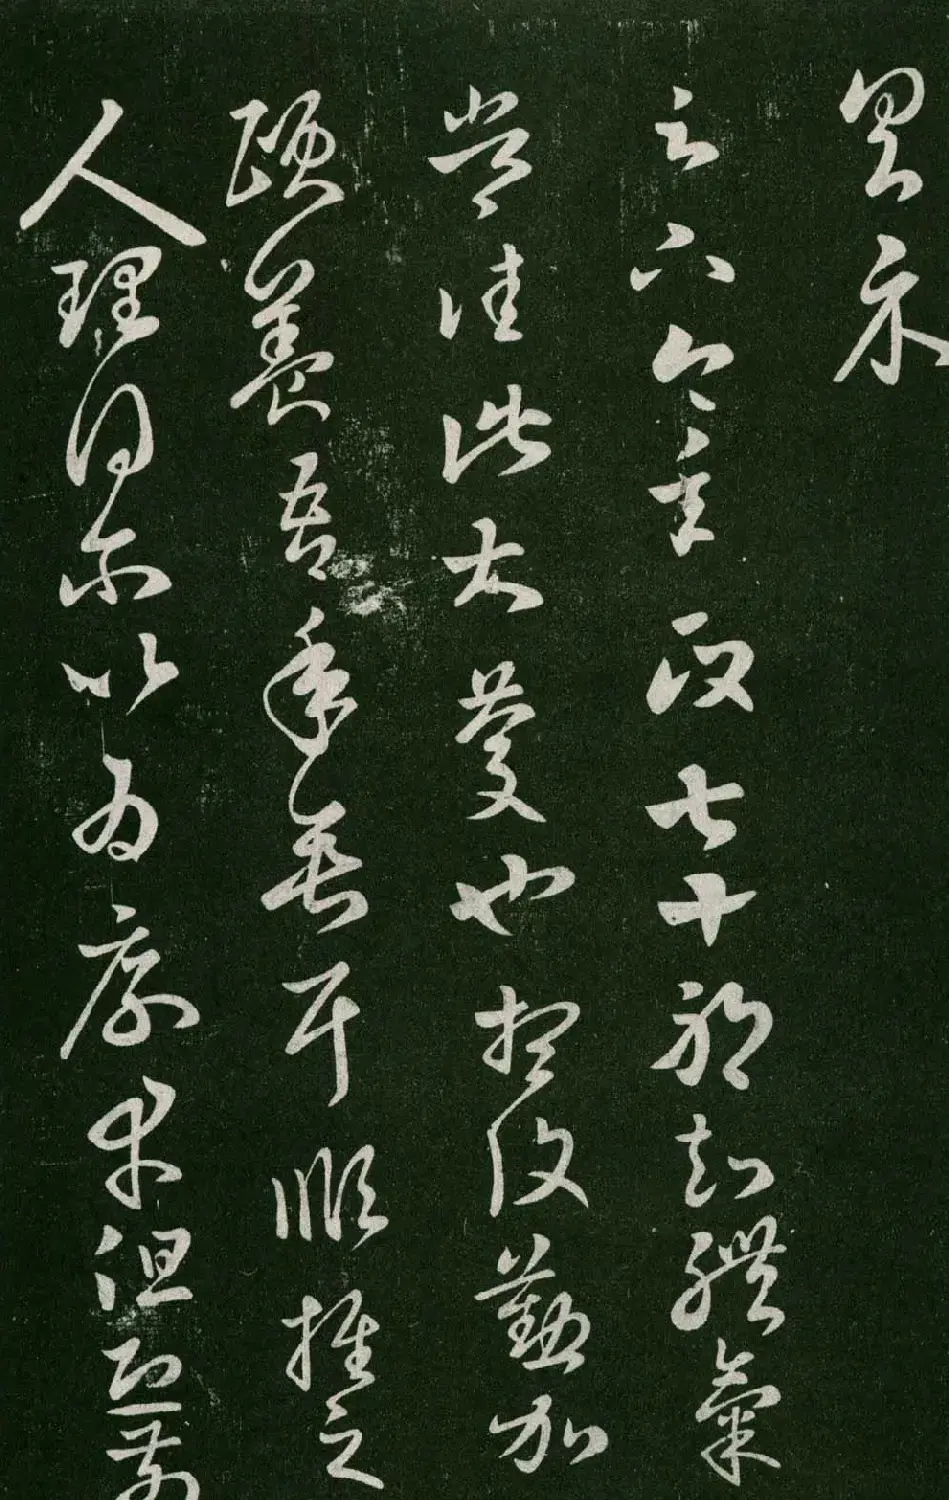 具示
足下今年政七十耶知體氣
常佳此大慶也想復勤加
頤養吾年垂耳順推之
人理得爾以為厚幸但恐前